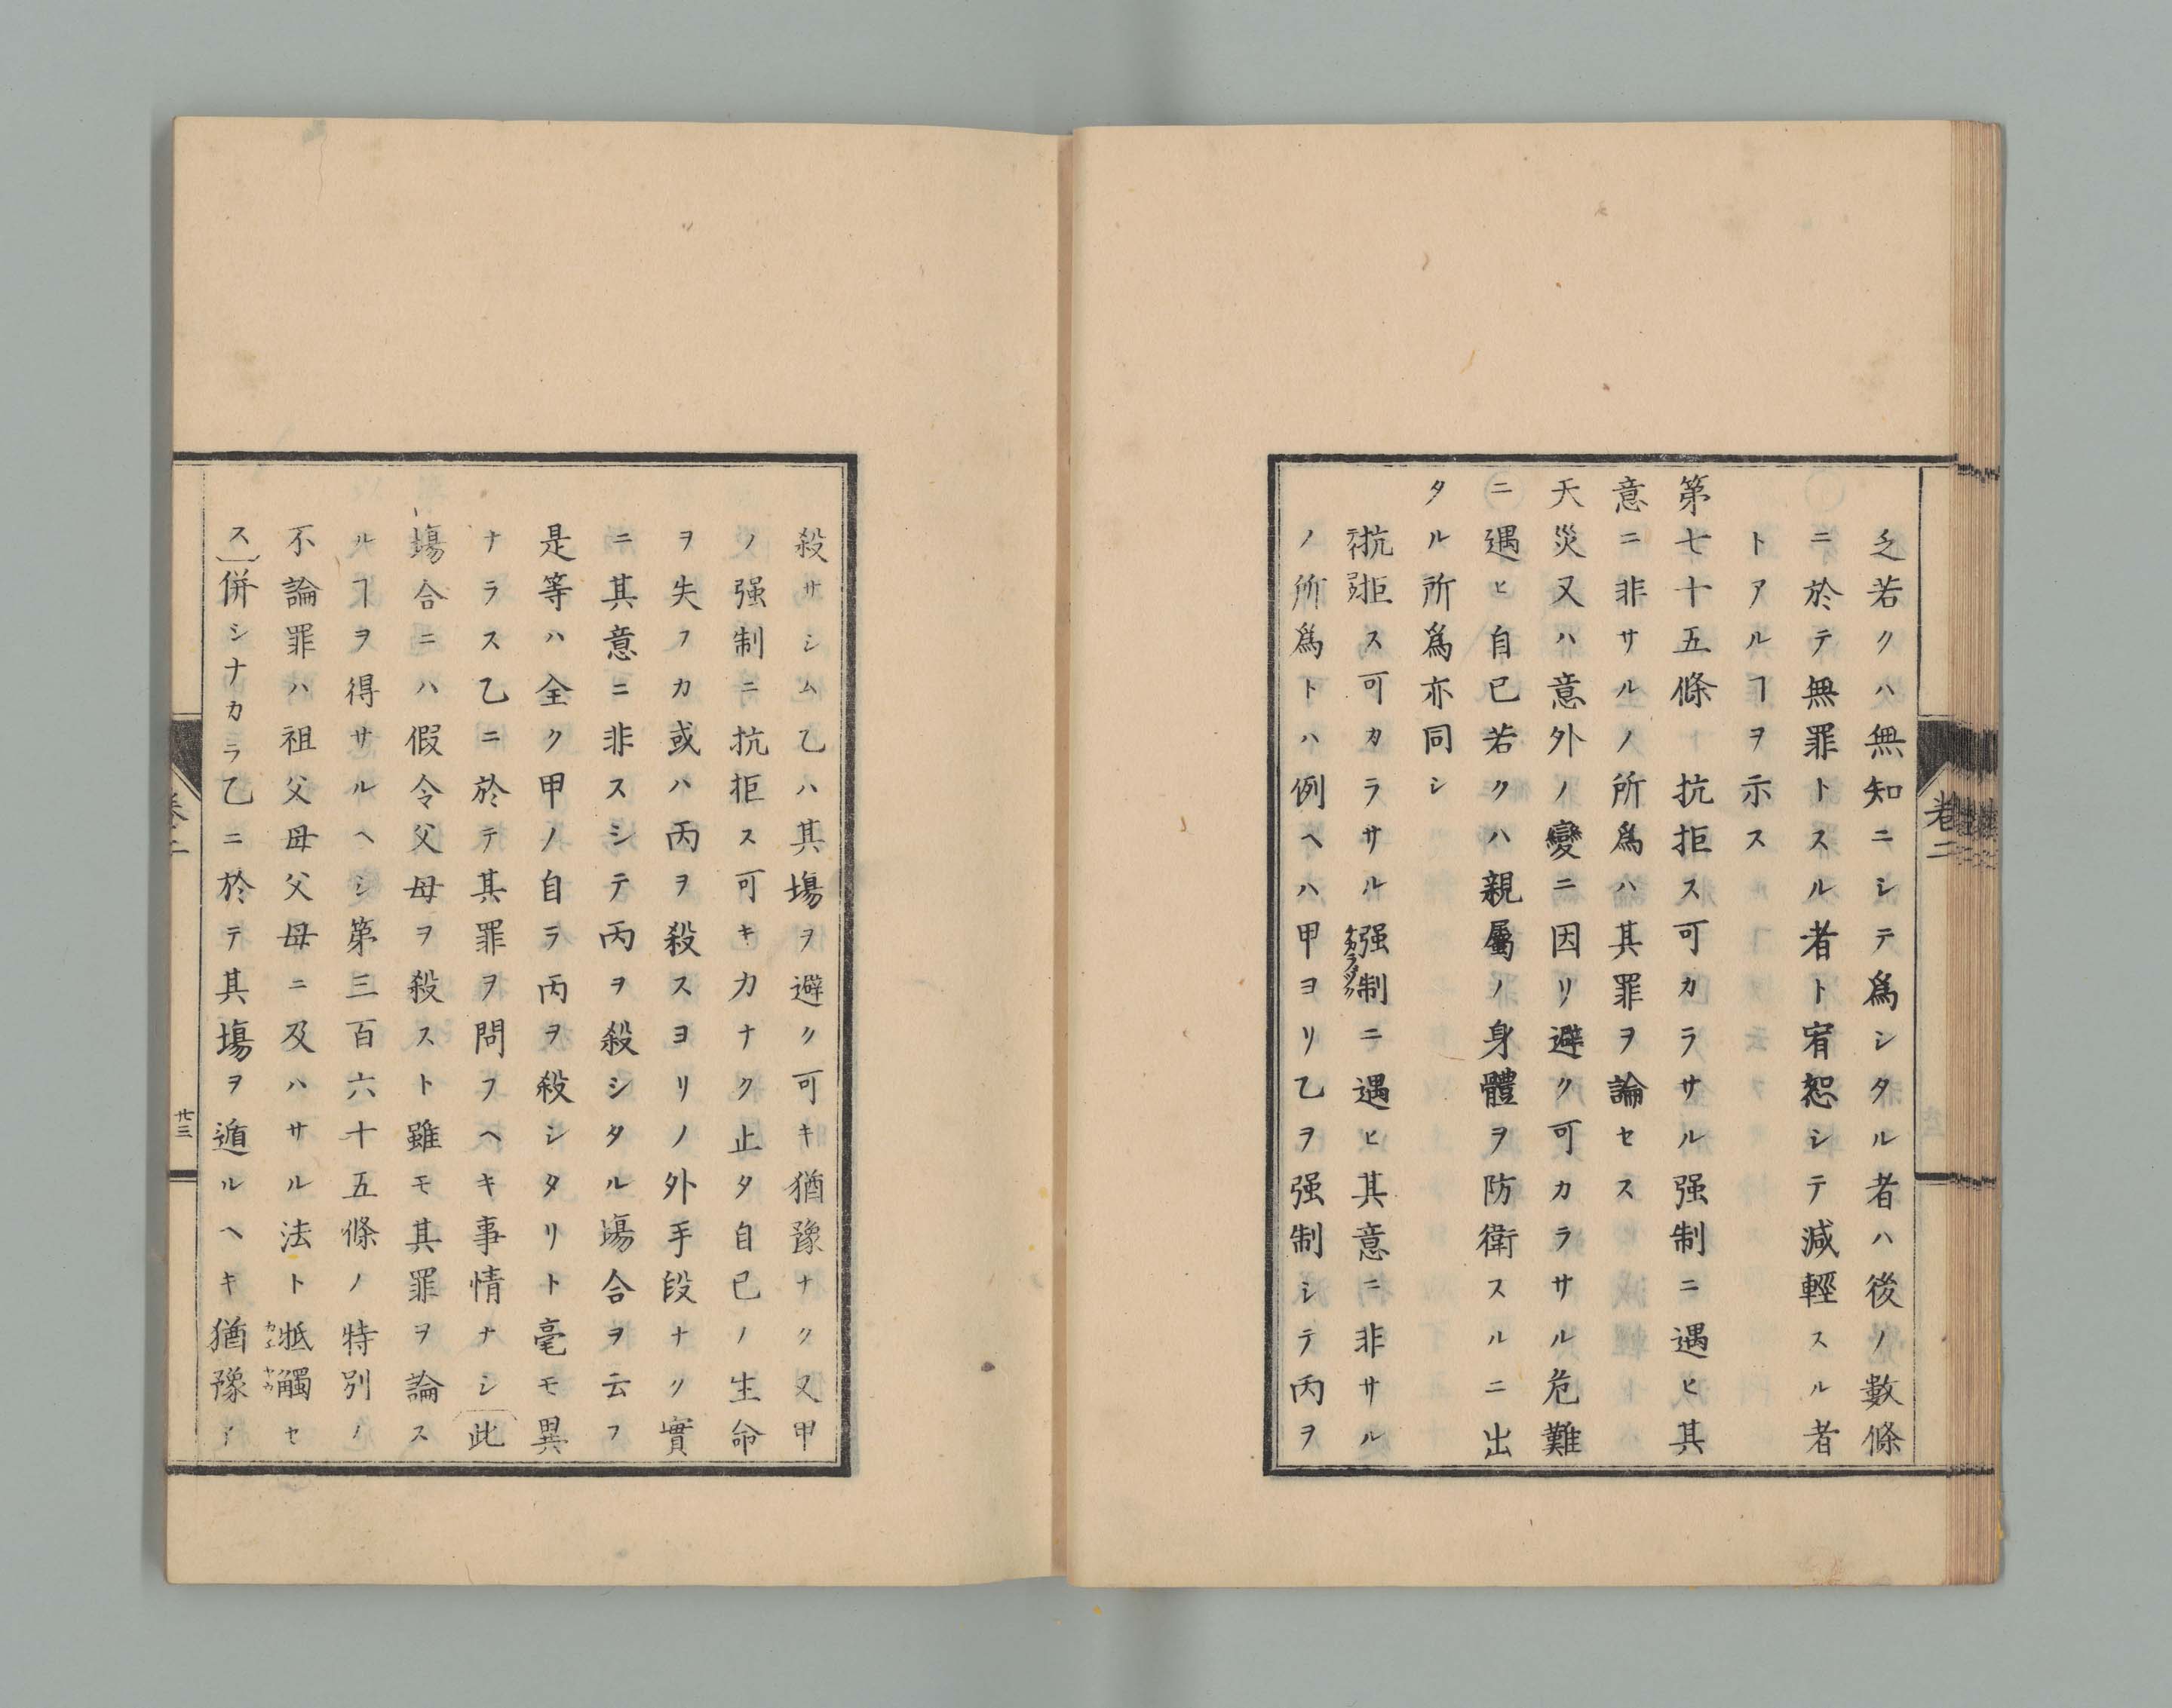 乏若クハ無知ニシテ爲シタル者ハ後ノ數條
ニ於テ無罪トスル者ト宥恕シテ減輕スル者
トアルヿヲ示ス
第七十五條 抗拒ス可カラサル强制ニ遇ヒ其
意ニ非サルノ所爲ハ其罪ヲ論セス
天災又ハ意外ノ變ニ因リ避ク可カラサル危難
ニ遇ヒ自己若クハ親屬ノ身體ヲ防衛スルニ出
タル所爲亦同シ
抗拒ス可カラサル强制ニ遇ヒ其意ニ非サル
ノ所爲トハ例ヘハ甲ヨリ乙ヲ强制シテ丙ヲ
卷二
殺サシム乙ハ其塲ヲ避ク可キ猶豫ナク又甲
ノ强制ニ抗拒ス可キ力ナク止タ自己ノ生命
ヲ失フカ或ハ丙ヲ殺スヨリノ外手段ナク實
ニ其意ニ非スシテ丙ヲ殺シタル塲合ヲ云フ
是等ハ全ク甲ノ自ラ丙ヲ殺シタリト毫モ異
ナラス乙ニ於テ其罪ヲ問フヘキ事情ナシ此
塲合ニハ假令父母ヲ殺スト雖モ其罪ヲ論ス
ルヿヲ得サルヘシ第三百六十五條ノ特別ノ
不論罪ハ祖父母父母ニ及ハサル法ト牴觸セ
ス併シナカラ乙ニ於テ其塲ヲ遁ルヘキ猶豫ア
卷二
廿三